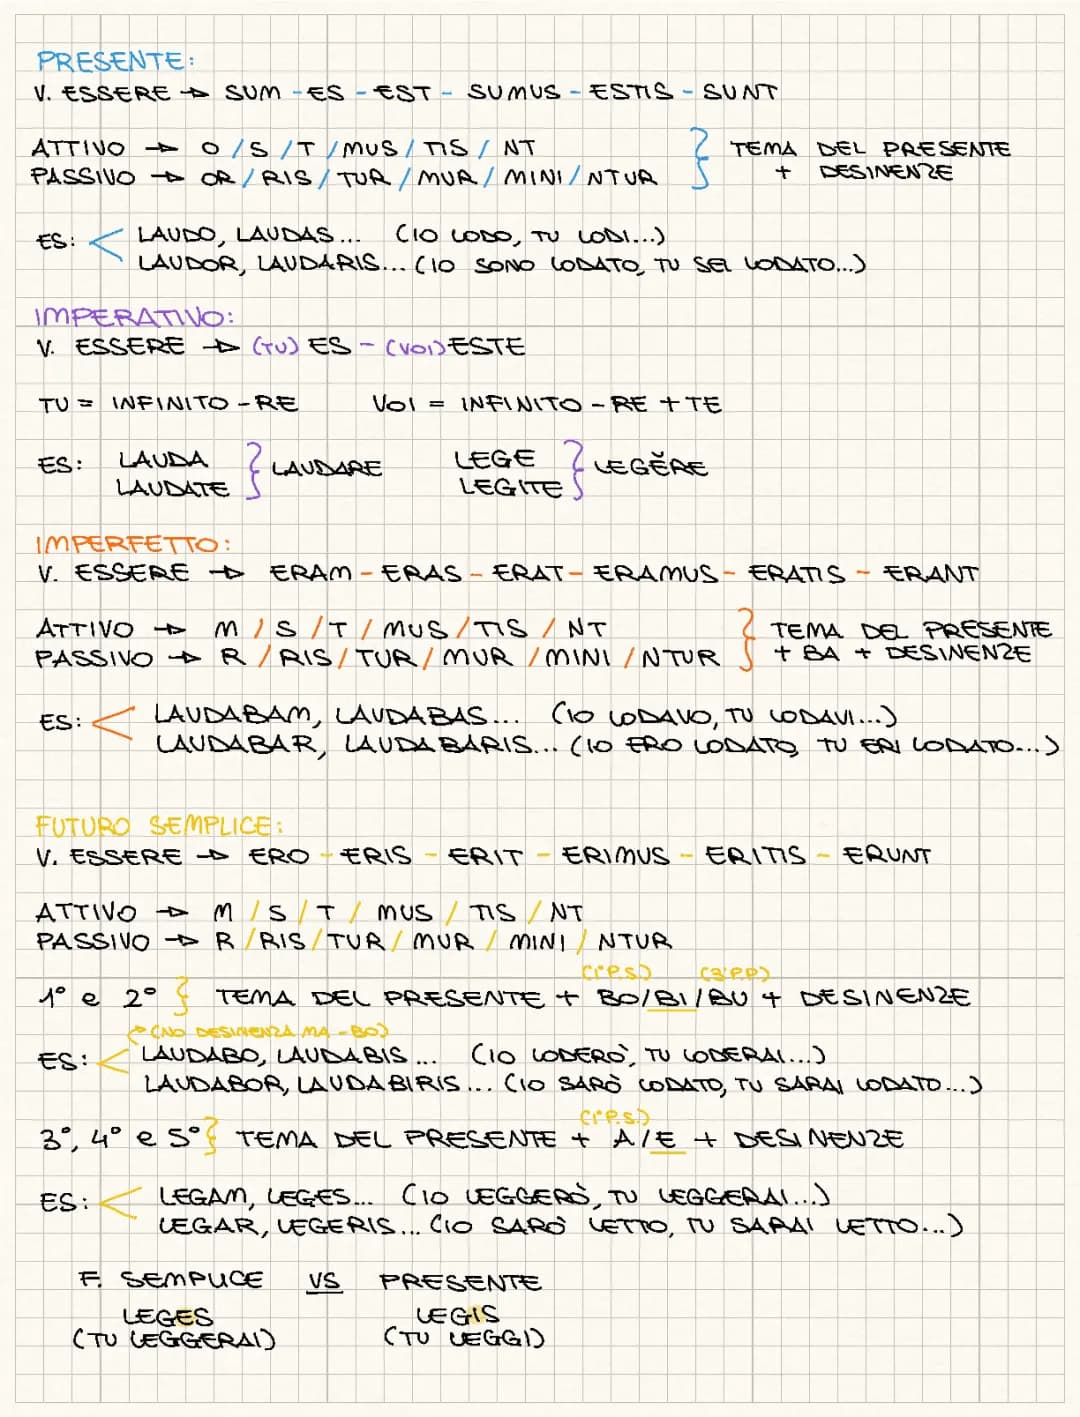 PRESENTE:
V. ESSERE → SUM - ES - EST - SUMUS - ESTIS - SUNT
ATTIVO → O / S / T / MUS / TIS / NT
PASSIVO → OR / RIS / TUR / MUR / MINI / NTUR
} TEMA DEL PRESENTE
+ DESINENZE
ES: < LAUDO, LAUDAS... (IO LODO, TU LODI...)
LAUDOR, LAUDARIS... (IO SONO LODATO, TU SEI LODATO...)
IMPERATIVO:
V. ESSERE → (TU) ES - (VOI) ESTE
TU = INFINITO - RE VOI = INFINITO - RE + TE
ES: LAUDA
LAUDATE } LAUDARE
LEGE
LEGITE } LEGĔRE
IMPERFETTO:
V. ESSERE → ERAM - ERAS - ERAT - ERAMUS - ERATIS - ERANT
ATTIVO → M / S / T / MUS / TIS / NT
PASSIVO → R / RIS / TUR / MUR / MINI / NTUR
} TEMA DEL PRESENTE
+ BA + DESINENZE
ES: < LAUDABAM, LAUDABAS... (IO LODAVO, TU LODAVI...)
LAUDABAR, LAUDABARIS... (IO ERO LODATO, TU ERI LODATO...)
FUTURO SEMPLICE:
V. ESSERE → ERO - ERIS - ERIT - ERIMUS - ERITIS - ERUNT
ATTIVO → M / S / T / MUS / TIS / NT
PASSIVO → R / RIS / TUR / MUR / MINI / NTUR
(1ªP.S) (3ªP.P)
1° e 2° { TEMA DEL PRESENTE + BO/BI/BU + DESINENZE
(NO DESINENZA MA -BO)
ES: < LAUDABO, LAUDABIS... (IO LODERÒ, TU LODERAI...)
LAUDABOR, LAUDABIRIS... (IO SARÒ LODATO, TU SARAI LODATO...)
(1ªP.S.)
3°, 4° e 5° { TEMA DEL PRESENTE + A/E + DESINENZE
ES: < LEGAM, LEGES... (IO LEGGERÒ, TU LEGGERAI...)
LEGAR, LEGERIS... (IO SARÒ LETTO, TU SARAI LETTO...)
F. SEMPLICE VS PRESENTE
LEGES LEGIS
(TU LEGGERAI) (TU LEGGI)